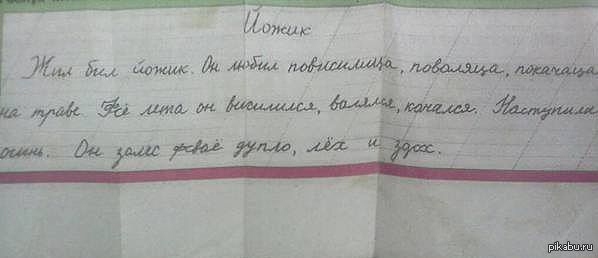 Йожик
Жил бил йожик. Он любил повисилица, поволяца, покачаца
на траве. Fсё лета он висилился, валялся, качался. Наступила
осинь. Он залес fсваё дупло, лёх и здох.
pikabu.ru